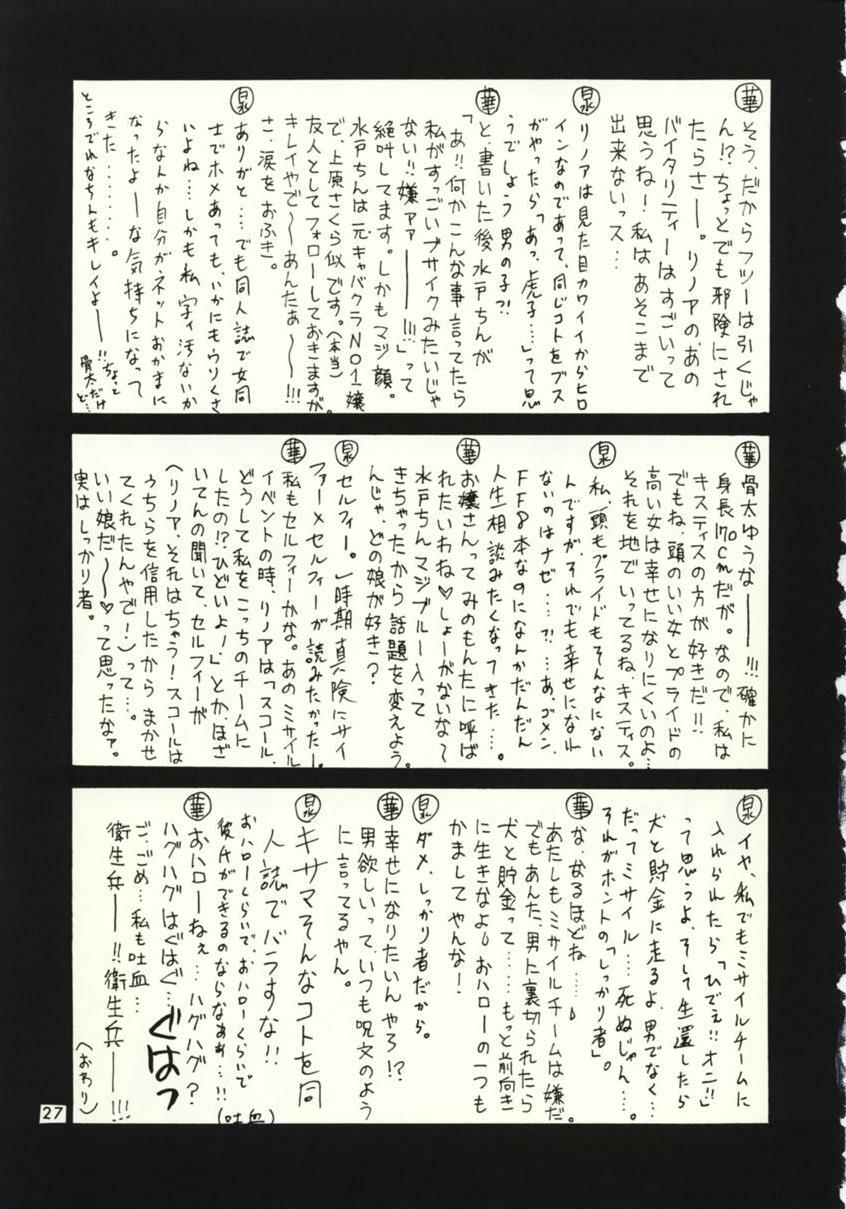 華 そう、だからフツーは引くじゃ
ん!?ちょっとでも邪険にされ
たらさー。リノアのあの
バイタリティーはすごいって
思うね!私はあそこまで
出来ないっス…
泉 リノアは見た目カワイイからヒロ
インなのであって、同じコトをブス
がやったら「あっ、虎子…」って思
うでしょう男の子?!
華 と書いた後水戸ちんが
「あ!!何かこんな事言ってたら
私がすっごいブサイクみたいじゃ
ない!!嫌ァァ――!!!」って
絶叫してます。しかもマジ顔。
水戸ちんは元キャバクラNO1嬢
で、上原さくら似です。(本当)
友人としてフォローしておきますが。
キレイやで〜〜あんたぁ〜〜!!!
さ、涙をおふき。
泉 ありがと…でも同人誌で女同
士でホメあっても、いかにもウリくさ
いよね…しかも私、字ィ汚ないか
らなんか自分がネットおかまに
なったよーな気持ちになって
きた………。
ところでれなちんもキレイよ――!!ちょっと
骨太だけど…
華 骨太ゆうな――!!!確かに
身長170cmだが。なので、私は
キスティスの方が好きだ!!
でもね、頭のいい女とプライドの
高い女は幸せになりにくいのよ…
それを地でいってるね、キスティス。
泉 私、頭もプライドもそんなにない
んですが、それでも幸せになれ
ないのはナゼ…?!…あ、ゴメン、
FF8本なのになんかだんだん
人生相談みたくなってきた…。
華 お嬢さんってみのもんたに呼ば
れたいわね♡しょーがないな〜
水戸ちんマジブルー入って
きちゃったから話題を変えよう。
んじゃ、どの娘が好き?
泉 セルフィー。1時期真険にサイ
ファー×セルフィーが読みたかったー。
華 私もセルフィーかな。あのミサイル
イベントの時、リノアは「スコール、
どうして私をこっちのチームに
したの!?ひどいよ!」とか、ほざ
いてんの聞いて、セルフィーが
(リノア、それはちゃう!スコールは
うちらを信用したからまかせ
てくれたんやで!)って…。
いい娘だ〜〜♡って思ったなァ。
実はしっかり者。
泉 イヤ、私でもミサイルチームに
入れられたら「ひでぇ!!オニ!!」
って思うよ、そして生還したら
犬と貯金に走るよ、男でなく…
だってミサイル…死ぬじゃん…。
それがホントの「しっかり者」。
華 な、なるほどね……
あたしもミサイルチームは嫌だ。
でもあんた、男に裏切られたら
犬と貯金って……もっと前向き
に生きなよ おハローの一つも
かましてやんな!
泉 ダメ、しっかり者だから。
華 幸せになりたいんやろ!?
男欲しいって、いつも呪文のよう
に言ってるやん。
泉 キサマそんなコトを同
人誌でバラすな!!
おハローくらいで、おハローくらいで
彼氏ができるのならなぁぁ…!!
(吐血)
華 おハローねぇ…ハグハグ?
ハグハグはぐはぐ…ぐはっ
ご、ごめ…私も吐血…
衛生兵――!!衛生兵――!!!
(おわり)
27